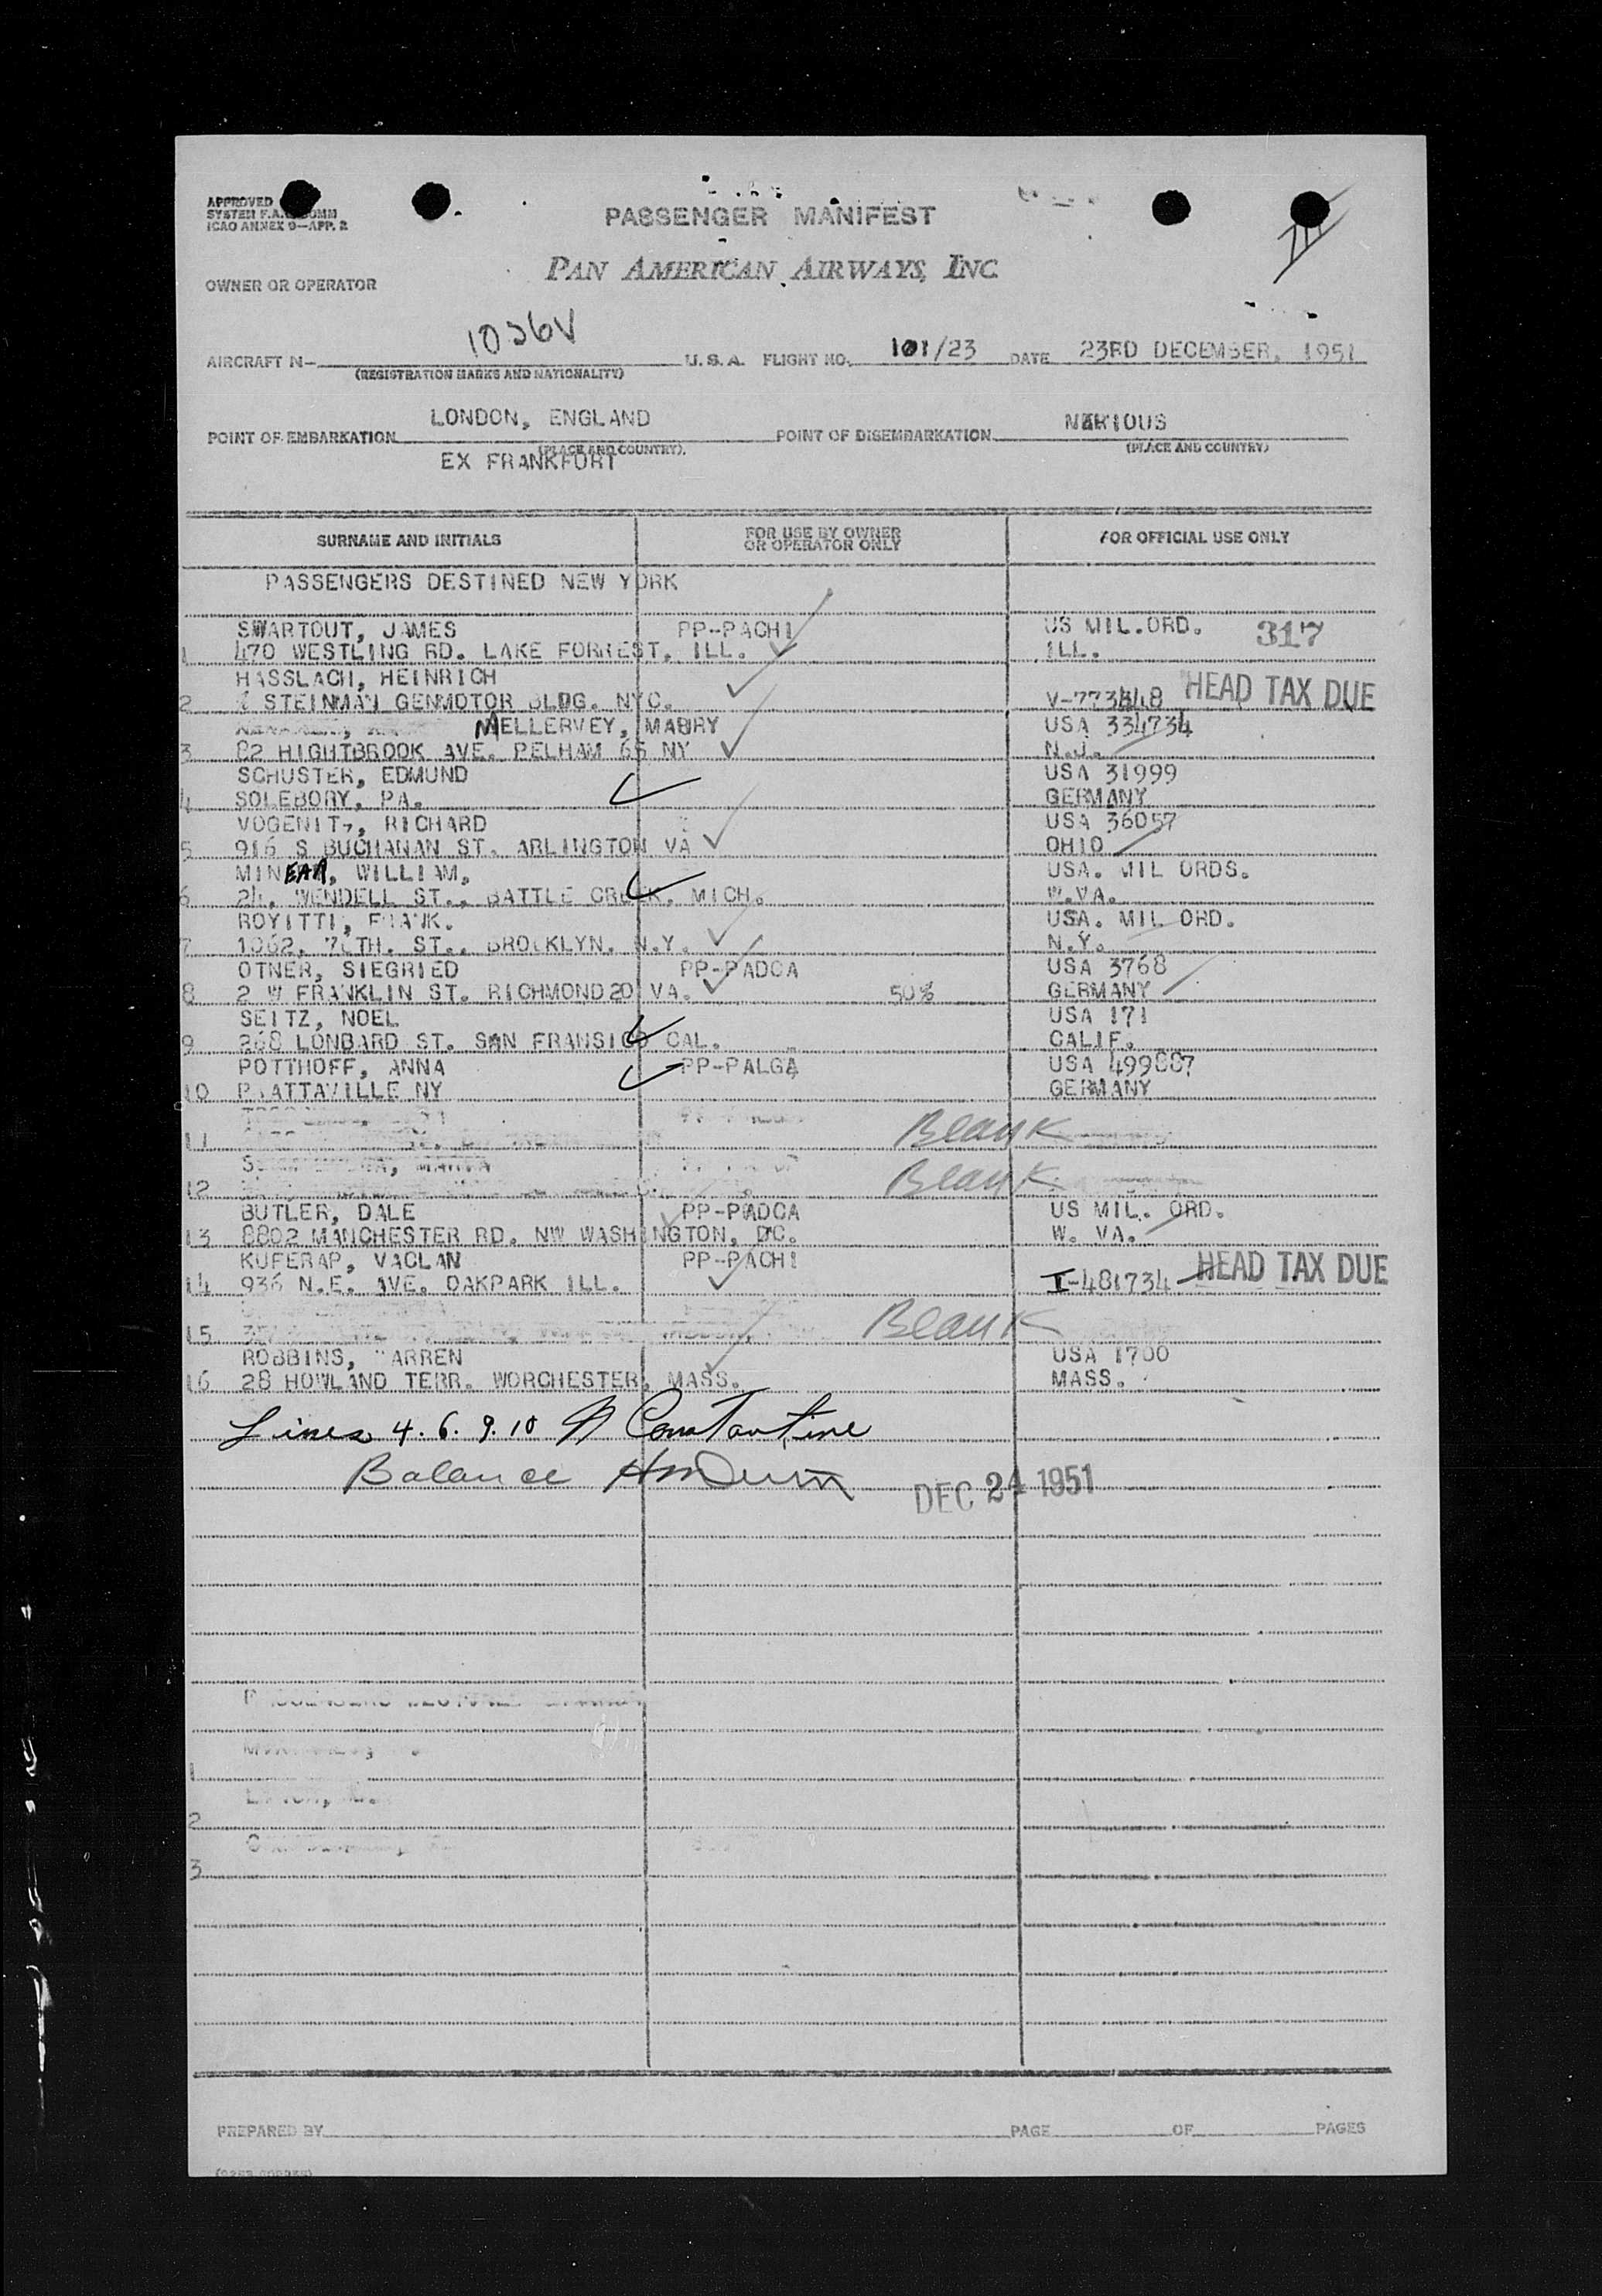 APPROVED
SYSTEM F.A.L. COMM
ICAO ANNEX 9—APP. 2
PASSENGER MANIFEST
PAN AMERICAN AIRWAYS, INC
OWNER OR OPERATOR
AIRCRAFT N- 1036V U.S.A. FLIGHT NO. 101/23 DATE 23RD DECEMBER, 1951
(REGISTRATION MARKS AND NATIONALITY)
LONDON, ENGLAND
POINT OF EMBARKATION POINT OF DISEMBARKATION
(PLACE AND COUNTRY) (PLACE AND COUNTRY)
EX FRANKFURT
SURNAME AND INITIALS FOR USE BY OWNER OR OPERATOR ONLY FOR OFFICIAL USE ONLY
PASSENGERS DESTINED NEW YORK
SWARTOUT, JAMES PP-PACHI US MIL.ORD. 317
1 470 WESTLING RD. LAKE FORREST, ILL. ILL.
HASSLACH, HEINRICH
2 % STEINMAN GENMOTOR BLDG. NYC. V-773448 HEAD TAX DUE
MELLERVEY, MABRY USA 334734
3 82 HIGHTBROOK AVE. PELHAM 65 NY N.J.
SCHUSTER, EDMUND USA 31999
4 SOLEBORY, PA. GERMANY
VOGENITZ, RICHARD USA 36057
5 916 S BUCHANAN ST. ARLINGTON VA OHIO
MINEAR, WILLIAM, USA. MIL ORDS.
6 24, WENDELL ST., BATTLE CREEK, MICH. W.VA.
ROYITTI, FRANK. USA. MIL ORD.
7 1062, 76TH. ST., BROOKLYN, N.Y. N.Y.
OTNER, SIEGRIED PP-PADCA USA 3768
8 2 W FRANKLIN ST. RICHMOND 20 VA. 50% GERMANY
SEITZ, NOEL USA 171
9 268 LONBARD ST. SAN FRANSICO CAL. CALIF.
POTTHOFF, ANNA PP-PALGA USA 499887
10 PRATTAVILLE NY GERMANY
11 Blank
12 Blank
BUTLER, DALE PP-PADCA US MIL. ORD.
13 8802 MANCHESTER RD. NW WASHINGTON, DC. W. VA.
KUFERAP, VACLAN PP-PACHI
14 936 N.E. AVE. OAKPARK ILL. I-481734 HEAD TAX DUE
15 Blank
ROBBINS, WARREN USA 1700
16 28 HOWLAND TERR. WORCHESTER, MASS. MASS.
Lines 4. 6. 9. 10 Constantine
Balance
DEC 24 1951
1
2
3
PREPARED BY PAGE OF PAGES